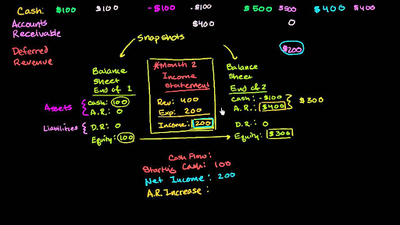 Cash: $100 $100 -$100 -$100 $500 $500 $400 $400
Accounts Receivable $400 0
Deferred Revenue $200
Snapshots
Balance Sheet End of 1
Assets
Cash: 100
A.R.: 0
Liabilities
D.R: 0
Equity: 100
Month 2
Income Statement
Rev: 400
Exp: 200
Income: 200
Balance Sheet End of 2
Cash: -$100
A.R.: $400
$300
D.R: 0
Equity: $300
Cash Flow:
Starting Cash: 100
Net Income: 200
A.R. Increase: